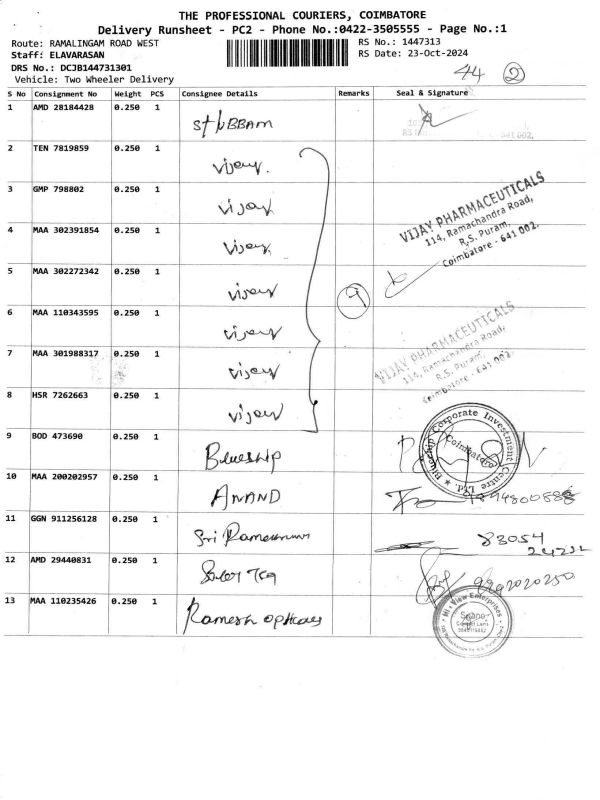 THE PROFESSIONAL COURIERS, COIMBATORE
Delivery Runsheet - PC2 - Phone No.:0422-3505555 - Page No.:1
Route: RAMALINGAM ROAD WEST
RS No.: 1447313
Staff: ELAVARASAN
RS Date: 23-Oct-2024
DRS No.: DCJB144731301
Vehicle: Two Wheeler Delivery
44 2
S No Consignment No Weight PCS Consignee Details Remarks Seal & Signature
1 AMD 28184428 0.250 1
2 TEN 7819859 0.250 1 vijay
3 GMP 798802 0.250 1 vijay
4 MAA 302391854 0.250 1 vijay
VIJAY PHARMACEUTICALS
114, Ramachandra Road,
R.S. Puram,
Coimbatore - 641 002.
5 MAA 302272342 0.250 1 vijay
9
6 MAA 110343595 0.250 1 vijay
VIJAY PHARMACEUTICALS
114, Ramachandra Road,
R.S. Puram,
Coimbatore - 641 002.
7 MAA 301988317 0.250 1 vijay
8 HSR 7262663 0.250 1 vijay
9 BOD 473690 0.250 1 Blueship
Bluechip Corporate Investment Centre Ltd.
Coimbatore
10 MAA 200202957 0.250 1 ANAND
11 GGN 911256128 0.250 1 Sri
83054
12 AMD 29440831 0.250 1
13 MAA 110235426 0.250 1 Ramesh opticals
Hi-View Enterprises